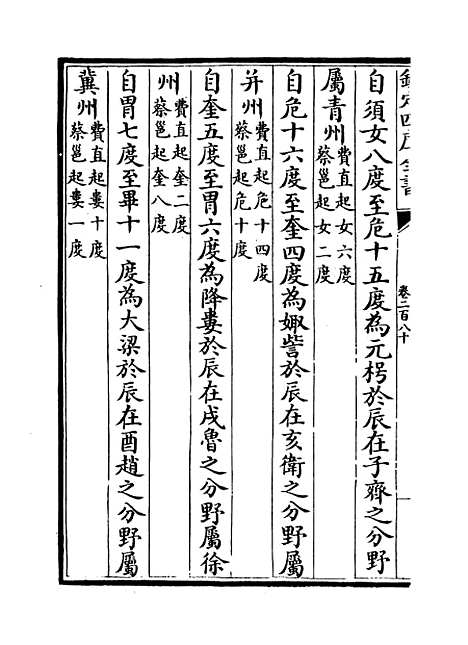 欽定四庫全書
卷二百八十
自須女八度至危十五度為元枵於辰在子齊之分野
屬青州費直起女六度蔡邕起女二度
自危十六度至奎四度為娵訾於辰在亥衛之分野屬
并州費直起危十四度蔡邕起危十度
自奎五度至胃六度為降婁於辰在戌魯之分野屬徐
州費直起奎二度蔡邕起奎八度
自胃七度至畢十一度為大梁於辰在酉趙之分野屬
冀州費直起婁十度蔡邕起婁一度